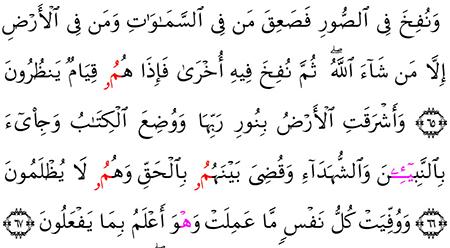 وَنُفِخَ فِى ٱلصُّورِ فَصَعِقَ مَن فِى ٱلسَّمَٰوَٰتِ وَمَن فِى ٱلْأَرْضِ
إِلَّا مَن شَآءَ ٱللَّهُ ۖ ثُمَّ نُفِخَ فِيهِ أُخْرَىٰ فَإِذَا هُمُۥ قِيَامٌ يَنظُرُونَ
﴿٦٥﴾ وَأَشْرَقَتِ ٱلْأَرْضُ بِنُورِ رَبِّهَا وَوُضِعَ ٱلْكِتَٰبُ وَجِا۟ىٓءَ
بِٱلنَّبِيٓـِٔۦنَ وَٱلشُّهَدَآءِ وَقُضِىَ بَيْنَهُمُۥ بِٱلْحَقِّ وَهُمُۥ لَا يُظْلَمُونَ
﴿٦٦﴾ وَوُفِّيَتْ كُلُّ نَفْسٍ مَّا عَمِلَتْ وَهْوَ أَعْلَمُ بِمَا يَفْعَلُونَ ﴿٦٧﴾